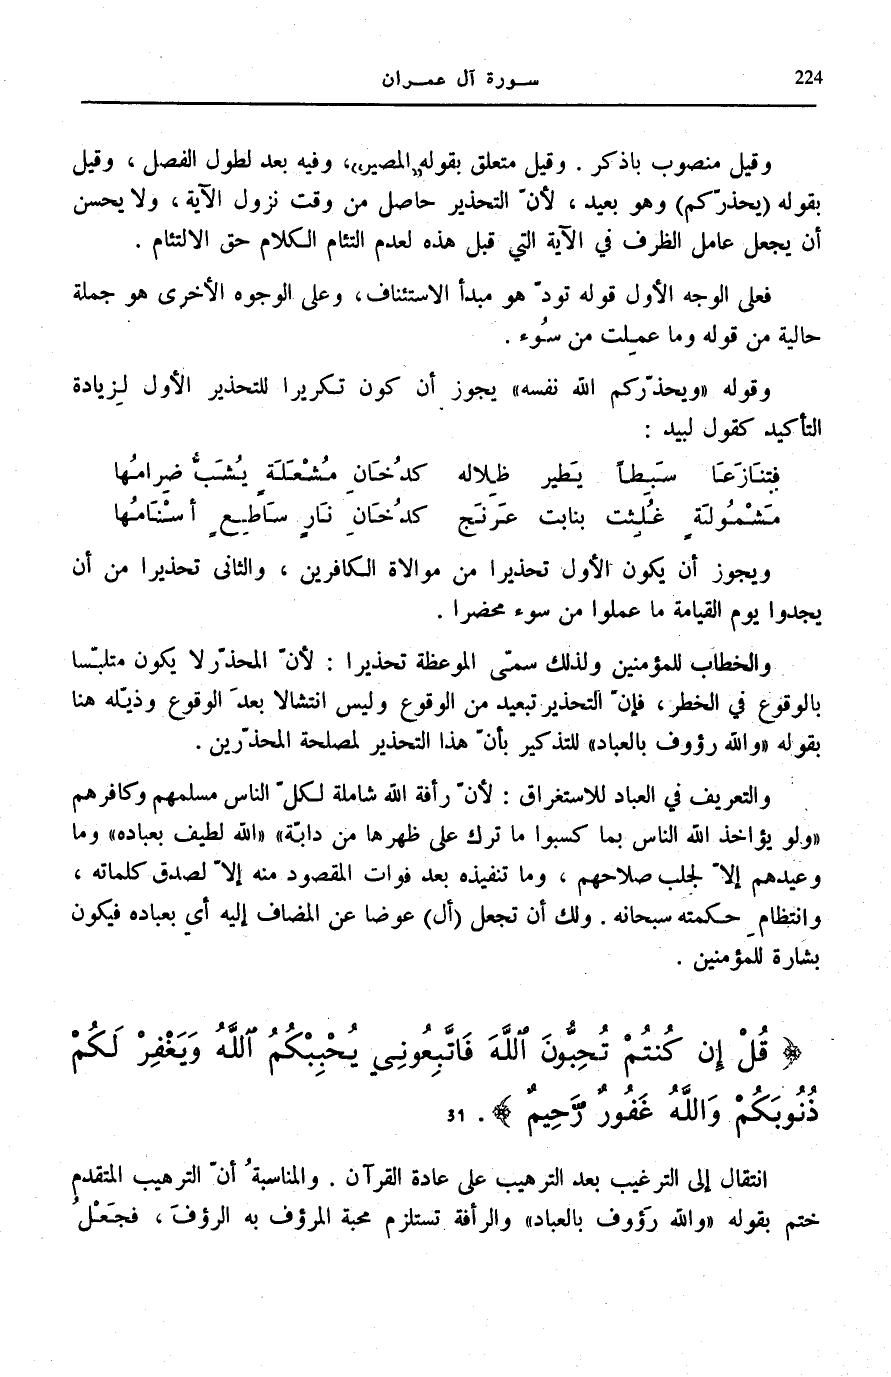 224
سورة آل عمران
وقيل منصوب باذكر . وقيل متعلق بقوله «المصير»، وفيه بعد لطول الفصل ، وقيل
بقوله (يحذرّكم) وهو بعيد ، لأنّ التحذير حاصل من وقت نزول الآية ، ولا يحسن
أن يجعل عامل الظرف في الآية التي قبل هذه لعدم التئام الكلام حق الالتئام .
فعلى الوجه الأول قوله تودّ هو مبدأ الاستئناف ، وعلى الوجوه الأخرى هو جملة
حالية من قوله وما عمِلت من سُوء .
وقوله «ويحذّركم الله نفسه» يجوز أن كون تكريرا للتحذير الأول لزِيادة
التأكيد كقول لبيد :
فتنَازَعَا سَبِطاً يَطير ظِلاله كدُخَانِ مُشْعَلَةٍ يُشَبُّ ضِرامُها
مَشْمُولَةٍ غُلِثت بنابت عَرْفَج كدُخَانِ نَارٍ سَاطِعٍ أسْنَامُها
ويجوز أن يكون الأول تحذيرا من موالاة الكافرين ، والثانى تحذيرا من أن
يجدوا يوم القيامة ما عملوا من سوء محضرا .
والخطاب للمؤمنين ولذلك سمّى الموعظة تحذيرا : لأنّ المحذّر لا يكون متلبّسا
بالوقوع في الخطر ، فإنّ التحذير تبعيد من الوقوع وليس انتشالا بعدَ الوقوع وذيّله هنا
بقوله «والله رؤوف بالعباد» للتذكير بأنّ هذا التحذير لمصلحة المحذّرين .
والتعريف في العباد للاستغراق : لأنّ رأفة الله شاملة لكلّ الناس مسلمهم وكافرهم
«ولو يؤاخذ الله الناس بما كسبوا ما ترك على ظهرها من دابّة» «الله لطيف بعباده» وما
وعيدهم إلاّ لجلب صلاحهم ، وما تنفيذه بعد فوات المقصود منه إلاّ لصدق كلماته ،
وانتظامِ حكمته سبحانه . ولك أن تجعل (أل) عوضا عن المضاف إليه أي بعباده فيكون
بشارة للمؤمنين .
﴿ قُلْ إِن كُنتُمْ تُحِبُّونَ ٱللَّهَ فَاتَّبِعُونِي يُحْبِبْكُمُ ٱللَّهُ وَيَغْفِرْ لَكُمْ
ذُنُوبَكُمْ وَاللَّهُ غَفُورٌ رَّحِيمٌ ﴾ . 31
انتقال إلى الترغيب بعد الترهيب على عادة القرآن . والمناسبةُ أنّ الترهيب المتقدم
ختم بقوله «والله رَؤوف بالعباد» والرأفة تستلزم محبة المرؤف به الرؤفَ ، فجَعْلُ